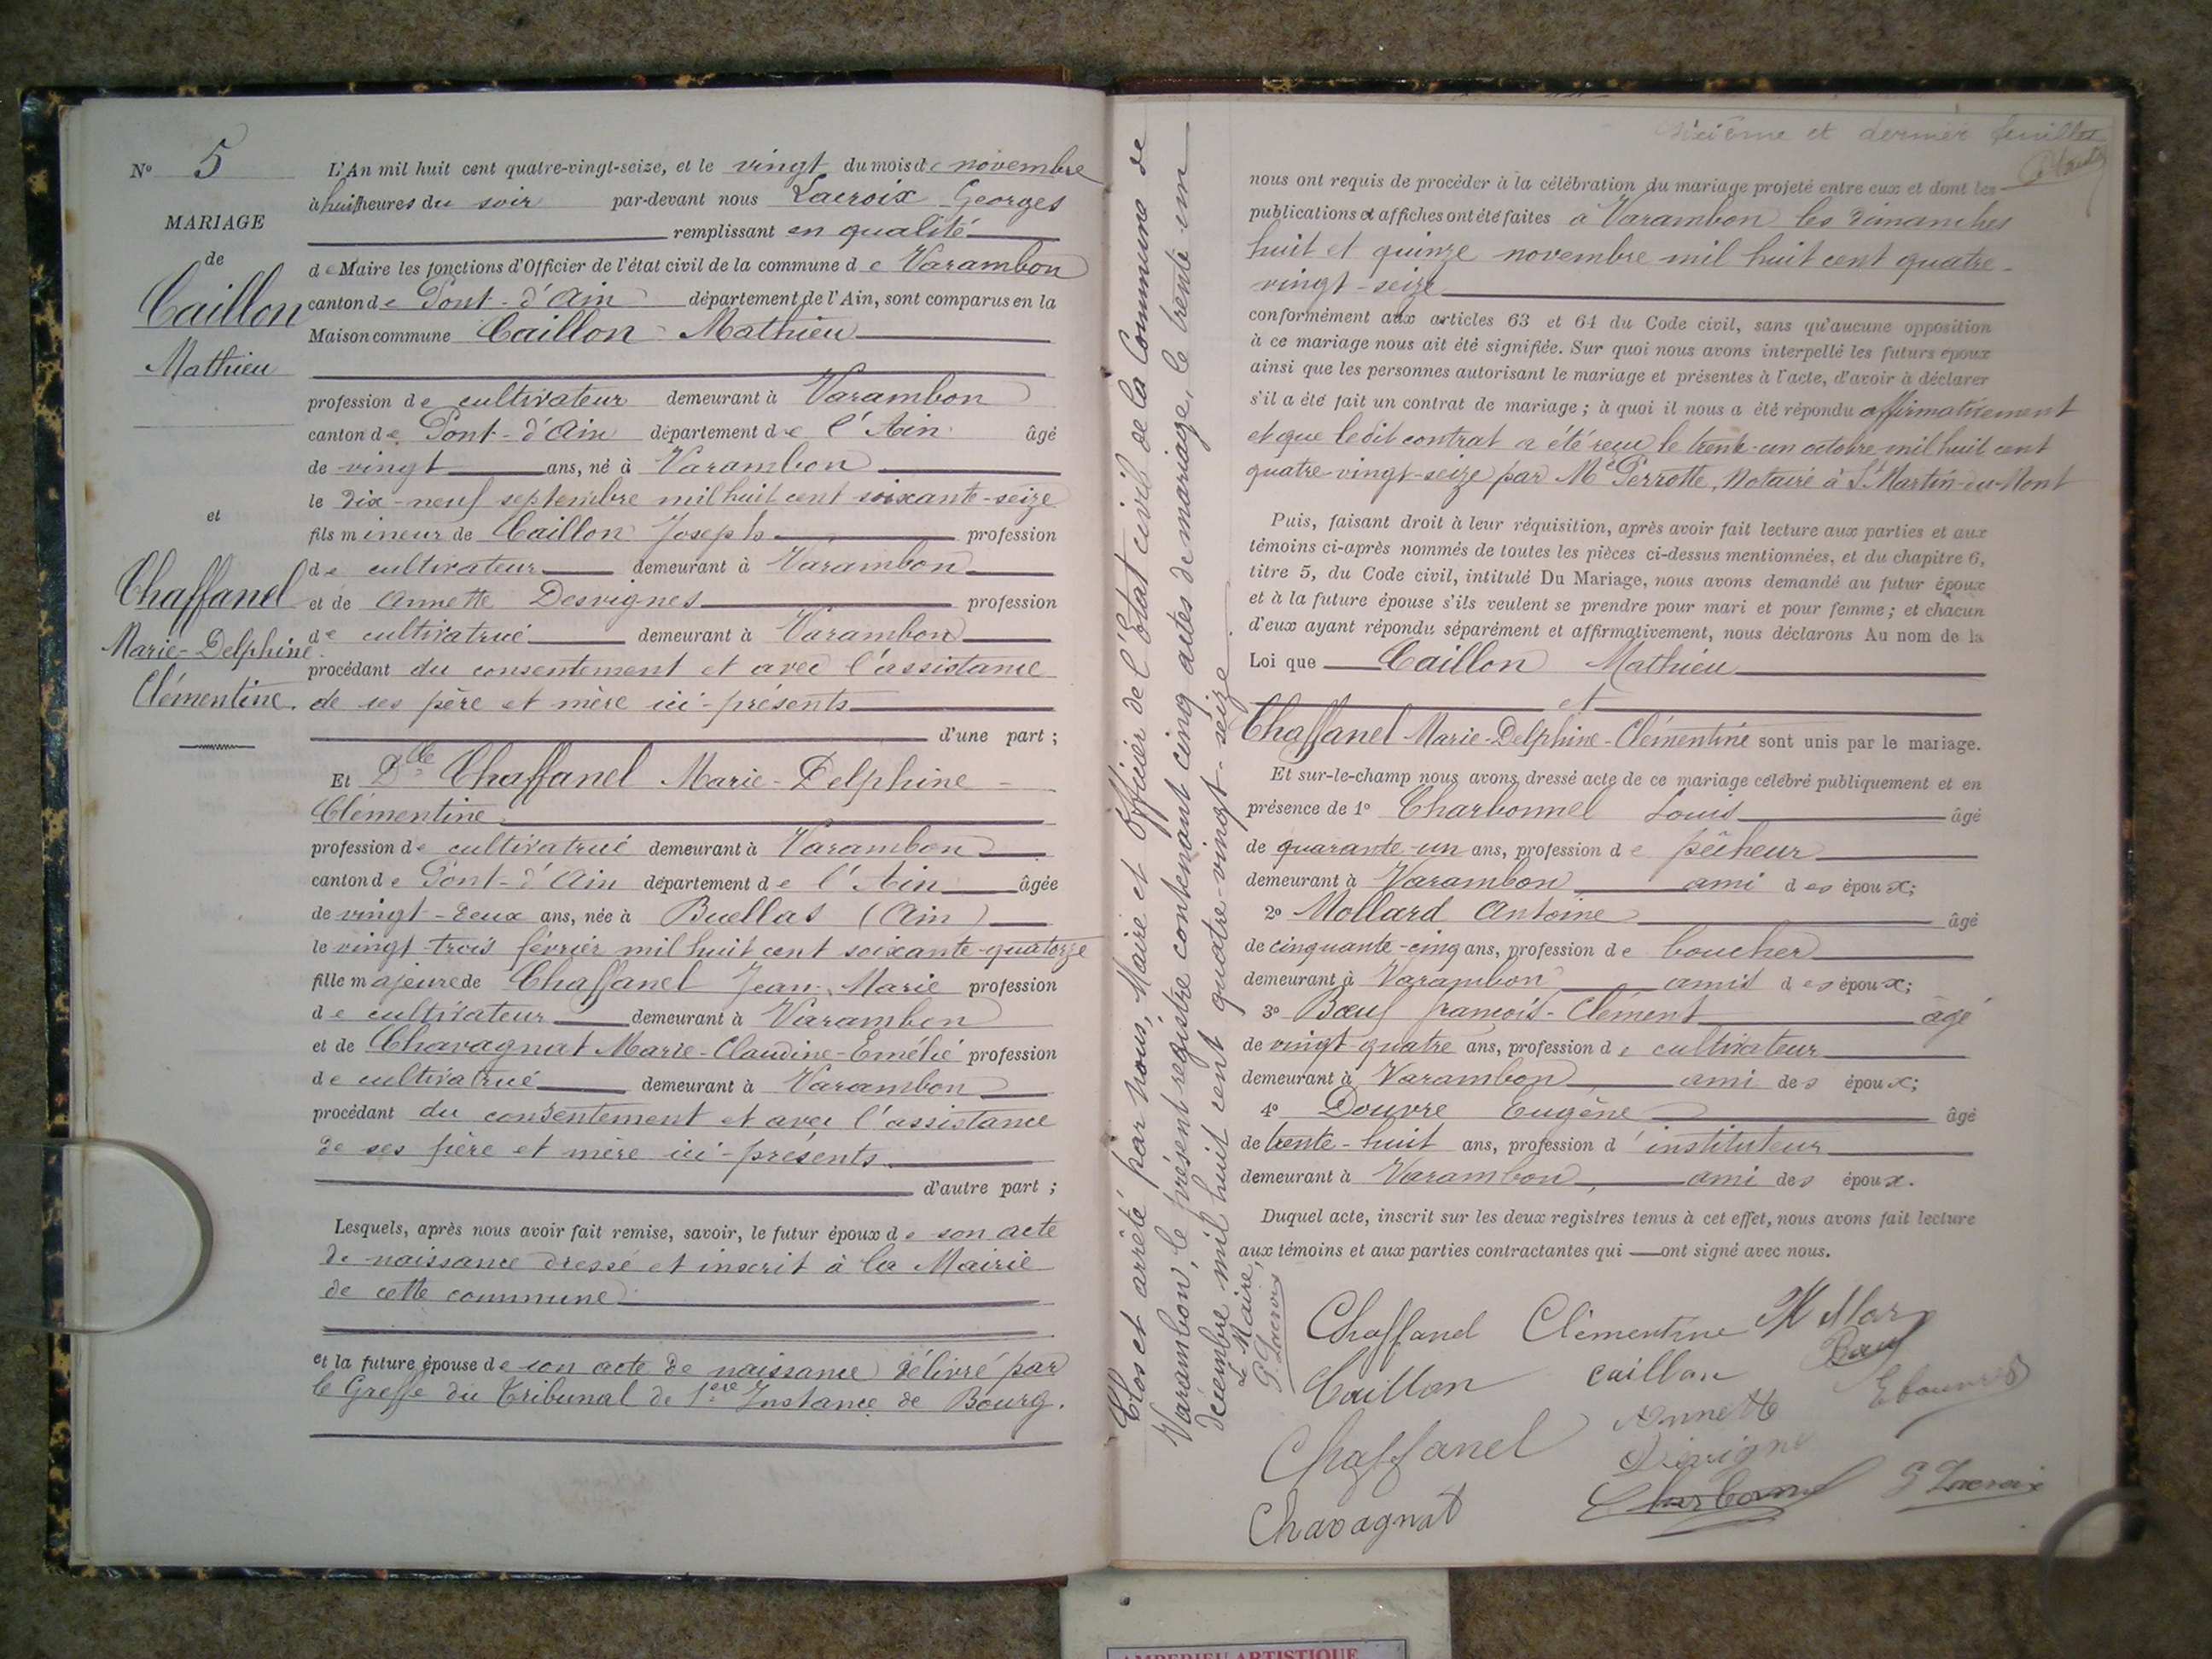 N° 5
MARIAGE
de
Caillon
Mathieu
et
Chaffanel
Marie-Delphine
Clémentine.
L'An mil huit cent quatre-vingt-seize, et le vingt du mois de novembre
à huit heures du soir par-devant nous Lacroix Georges
remplissant en qualité
de Maire les fonctions d'Officier de l'état civil de la commune de Varambon
canton de Pont-d'Ain département de l'Ain, sont comparus en la
Maison commune Caillon Mathieu
profession de cultivateur demeurant à Varambon
canton de Pont-d'Ain département de l'Ain âgé
de vingt ans, né à Varambon
le dix-neuf septembre mil huit cent soixante-seize
fils mineur de Caillon Joseph profession
de cultivateur demeurant à Varambon
et de Annette Desvignes profession
de cultivatrice demeurant à Varambon
procédant du consentement et avec l'assistance
de ses père et mère ici-présents
d'une part ;
Et Dlle Chaffanel Marie-Delphine-
Clémentine
profession de cultivatrice demeurant à Varambon
canton de Pont-d'Ain département de l'Ain âgée
de vingt-deux ans, née à Buellas (Ain)
le vingt-trois février mil huit cent soixante-quatorze
fille majeure de Chaffanel Jean-Marie profession
de cultivateur demeurant à Varambon
et de Chavagnat Marie-Claudine-Emélie profession
de cultivatrice demeurant à Varambon
procédant du consentement et avec l'assistance
de ses père et mère ici-présents
d'autre part ;
Lesquels, après nous avoir fait remise, savoir, le futur époux de son acte
de naissance dressé et inscrit à la Mairie
de cette commune
et la future épouse de son acte de naissance délivré par
le Greffe du Tribunal de 1ère Instance de Bourg.
Clos et arrêté par nous, Maire et Officier de l'Etat civil de la Commune de
Varambon, le présent registre contenant cinq actes de mariage, le trente un
décembre mil huit cent quatre-vingt-seize.
Le Maire,
G. Lacroix
sixième et dernier feuillet
nous ont requis de procéder à la célébration du mariage projeté entre eux et dont les
publications et affiches ont été faites à Varambon les dimanches
huit et quinze novembre mil huit cent quatre-
vingt-seize
conformément aux articles 63 et 64 du Code civil, sans qu'aucune opposition
à ce mariage nous ait été signifiée. Sur quoi nous avons interpellé les futurs époux
ainsi que les personnes autorisant le mariage et présentes à l'acte, d'avoir à déclarer
s'il a été fait un contrat de mariage ; à quoi il nous a été répondu affirmativement
et que ledit contrat a été reçu le trente-un octobre mil huit cent
quatre-vingt-seize par Me Perrotte, Notaire à St Martin-du-Mont
Puis, faisant droit à leur réquisition, après avoir fait lecture aux parties et aux
témoins ci-après nommés de toutes les pièces ci-dessus mentionnées, et du chapitre 6,
titre 5, du Code civil, intitulé Du Mariage, nous avons demandé au futur époux
et à la future épouse s'ils veulent se prendre pour mari et pour femme ; et chacun
d'eux ayant répondu séparément et affirmativement, nous déclarons Au nom de la
Loi que Caillon Mathieu
et
Chaffanel Marie-Delphine-Clémentine sont unis par le mariage.
Et sur-le-champ nous avons dressé acte de ce mariage célébré publiquement et en
présence de 1° Charbonnel Louis âgé
de quarante-un ans, profession de pêcheur
demeurant à Varambon ami des époux;
2° Mollard Antoine âgé
de cinquante-cinq ans, profession de boucher
demeurant à Varambon amis des époux;
3° Bœuf François-Clément âgé
de vingt-quatre ans, profession de cultivateur
demeurant à Varambon ami des époux;
4° Douvre Eugène âgé
de trente-huit ans, profession d'instituteur
demeurant à Varambon, ami des époux.
Duquel acte, inscrit sur les deux registres tenus à cet effet, nous avons fait lecture
aux témoins et aux parties contractantes qui ont signé avec nous.
Chaffanel Clémentine
Caillon caillon Bœuf
Chaffanel Annette
Chavagnat Charbonnel G Lacroix
AMBERIEU ARTISTIQUE